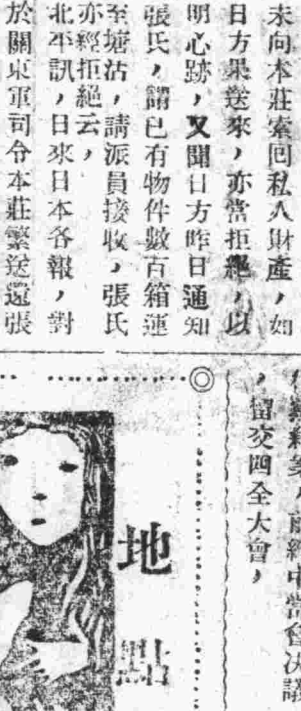 未向本莊索回私人財產，如
日方果送來，亦當拒絕，以
明心跡，又聞日方昨日通知
張氏，謂已有物件數百箱運
至塘沽，請派員接收，張氏
亦經拒絕云，
北平訊，日來日本各報，對
於關東軍司令本莊繁送還張
中常會決議
，留交四全大會，
地點